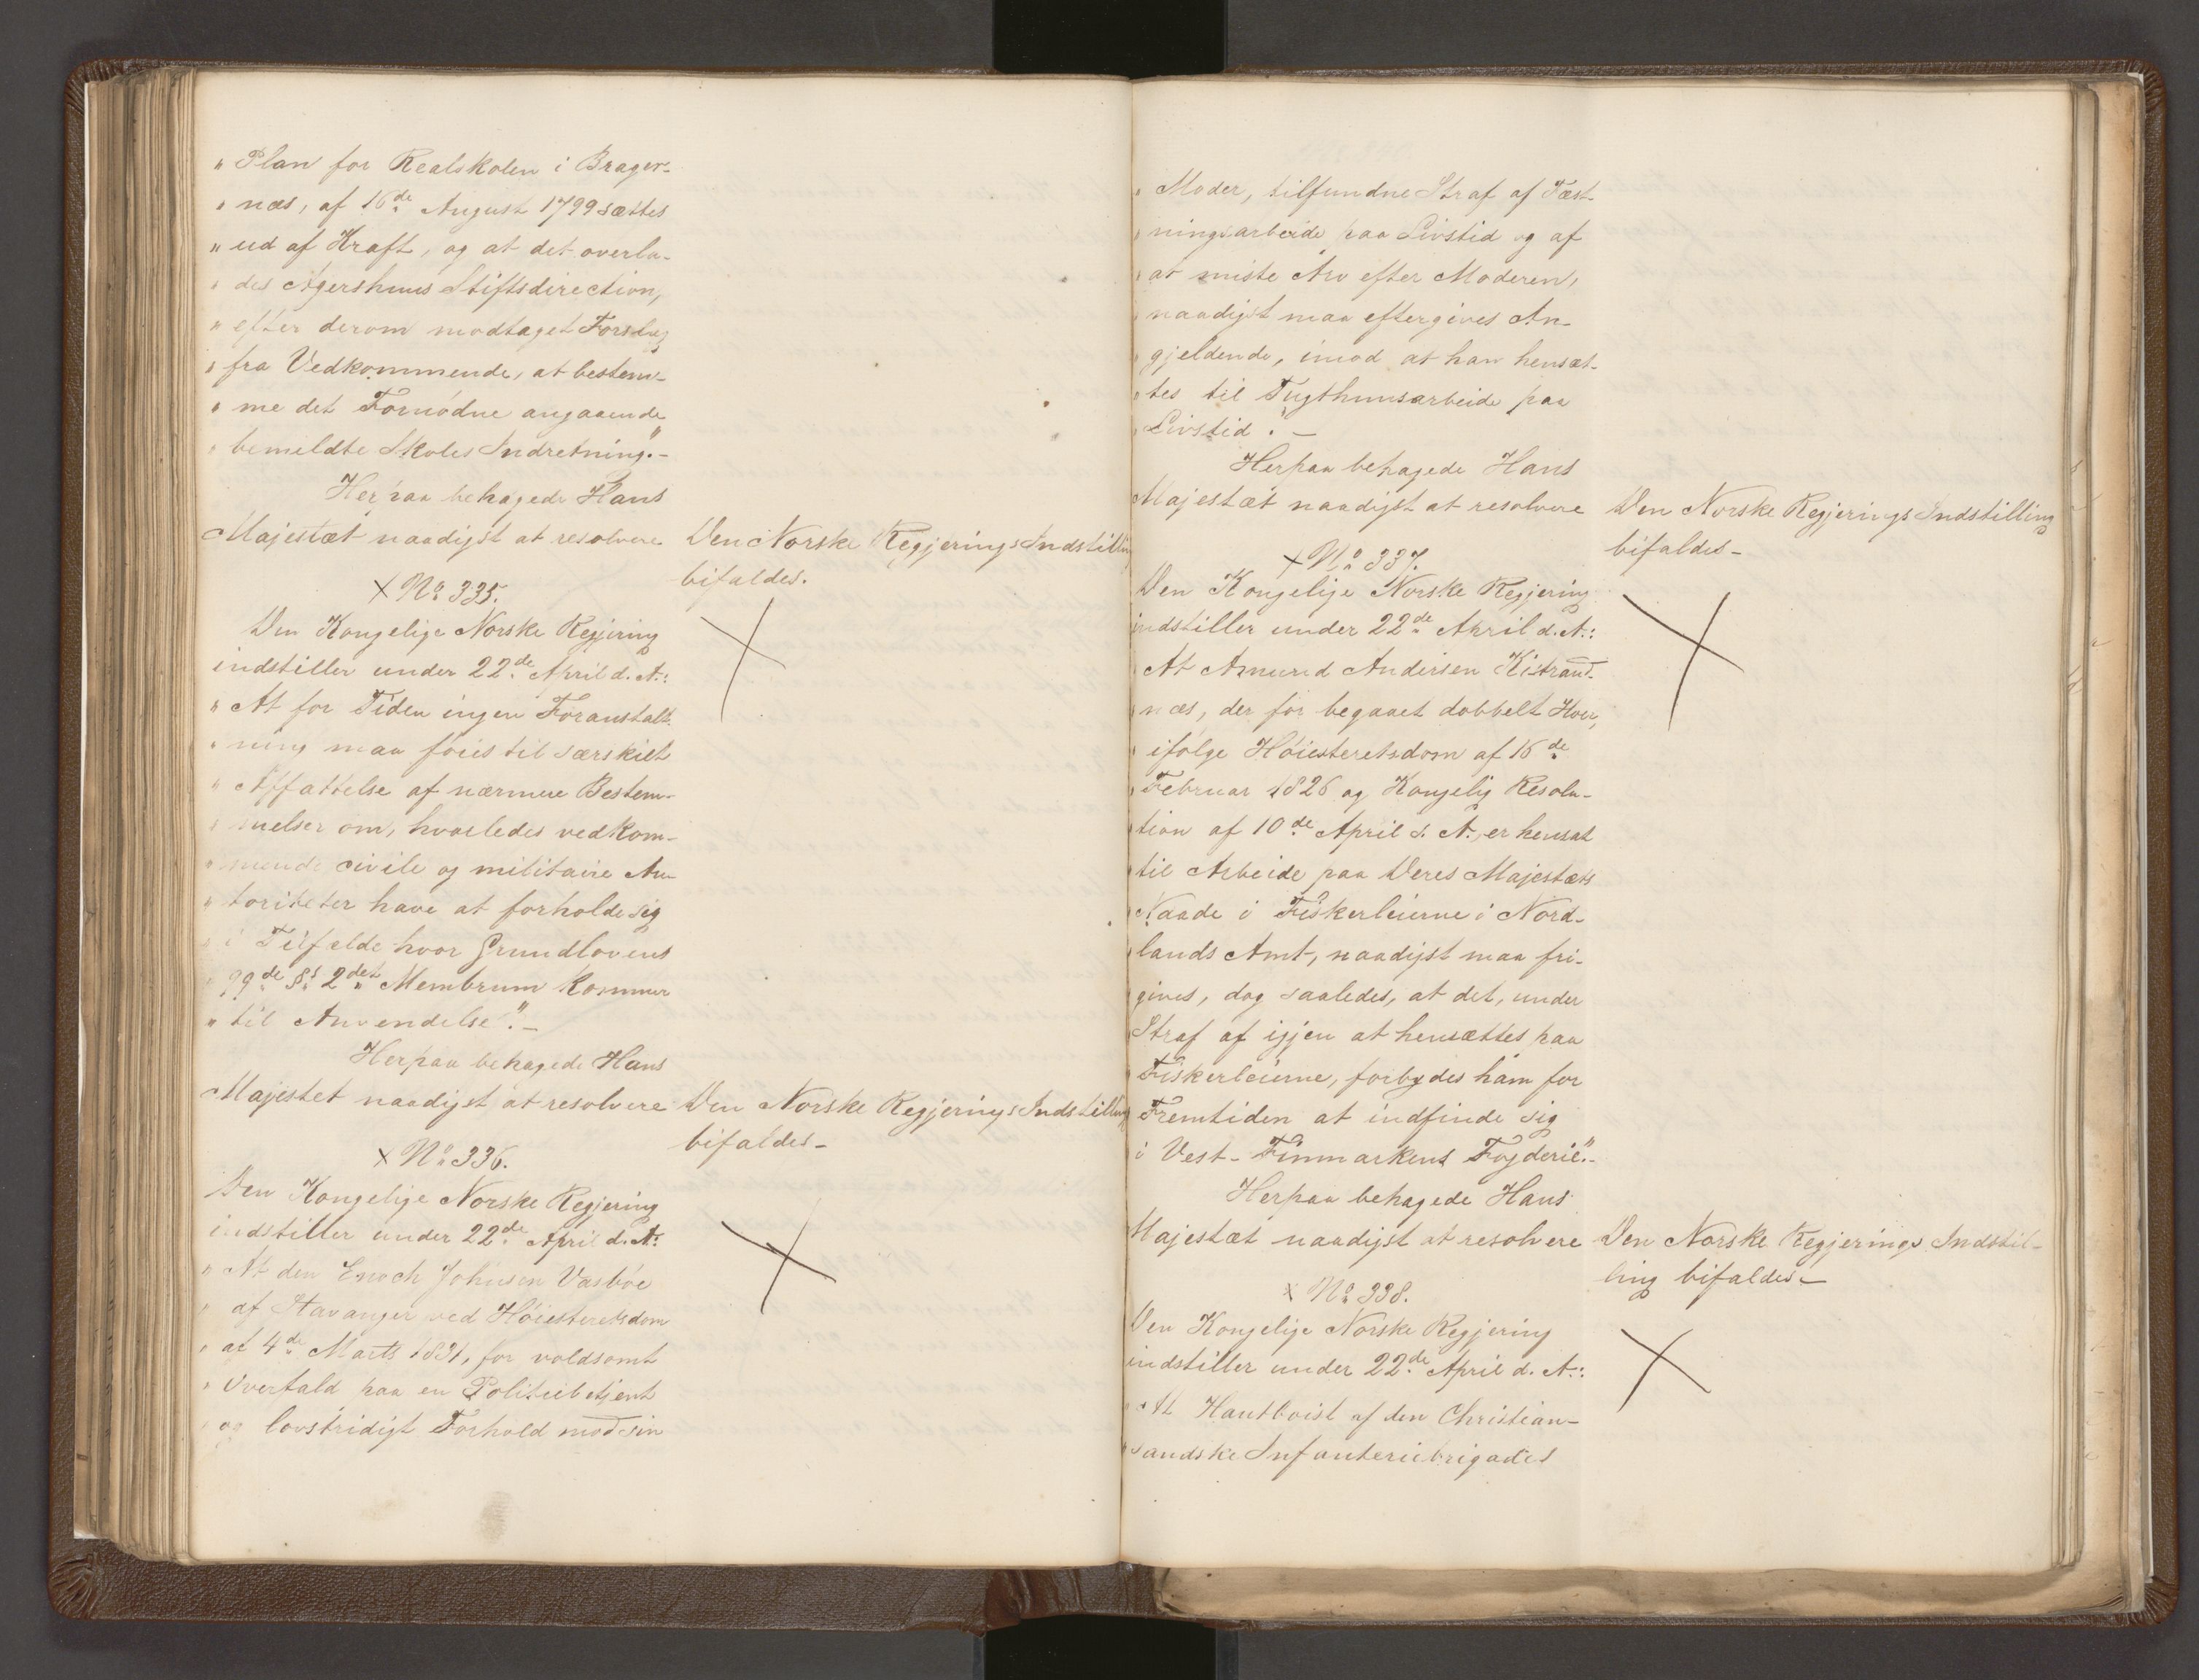 " Plan for Realskolen i Brager-
" næs, af 16de August 1799 sættes
" ud af Kraft, og at det overla-
" des Agershuus Stiftsdirection,
" efter derom modtaget Forslag
" fra Vedkommende, at bestem-
" me det Fornödne angaaende
" bemeldte Skoles Indretning." -
Herpaa behagede Hans
Majestæt naadigst at resolvere
Den Norske Regjerings Indstilling
bifaldes.
x No 335.
Den Kongelige Norske Regjering
indstiller under 22de April d. A.:
" At for Tiden ingen Foranstalt-
" ning maa föies til særskilt
" Affattelse af nærmere Bestem-
" melser om, hvorledes vedkom-
" mende civile og militaire Au-
" toriteter have at forholde sig
" i Tilfælde hvor Grundlovens
" 99de §s 2det Membrum kommer
" til Anvendelse". -
Herpaa behagede Hans
Majestet naadigst at resolvere
Den Norske Regjerings Indstilling
bifaldes -
x No 336.
Den Kongelige Norske Regjering
indstiller under 22de April d. A:
" At den Enoch Johnsen Vasböe
" af Stavanger ved Höiesteretsdom
" af 4de Marts 1831, for voldsomt
" Overfald paa en Politiebetjent
" og lovstridigt Forhold mod sin
" Moder, tilfundne Straf af Fæst-
" ningsarbeide paa Livstid og af
" at miste Arv efter Moderen,
" naadigst maa eftergives An-
" gjeldende, imod at han hensæt-
" tes til Tugthuusarbeide paa
" Livstid". -
Herpaa behagede Hans
Majestæt naadigst at resolvere
Den Norske Regjerings Indstilling
bifaldes -
x No 337.
Den Kongelige Norske Regjering
indstiller under 22de April d. A.:
" At Amund Andersen Kistrand-
" næs, der for begaaet dobbelt Hoer,
" ifölge Höiesteretsdom af 16de
" Februar 1826 og Kongelig Resolu-
" tion af 10de April s. A., er hensat
" til Arbeide paa Deres Majestæts
" Naade i Fiskerleierne i Nord-
" lands Amt, naadigst maa fri-
" gives, dog saaledes, at det, under
" Straf af igjen at hensættes paa
" Fiskerleierne, forbydes ham for
" Fremtiden at indfinde sig
" i Vest-Finmarkens Fogderie". -
Herpaa behagede Hans
Majestæt naadigst at resolvere
Den Norske Regjerings Indstil-
ling bifaldes -
x No 338.
Den Kongelige Norske Regjering
indstiller under 22de April d. A.:
" At Hautboist af den Christian-
" sandske Infanteriebrigades